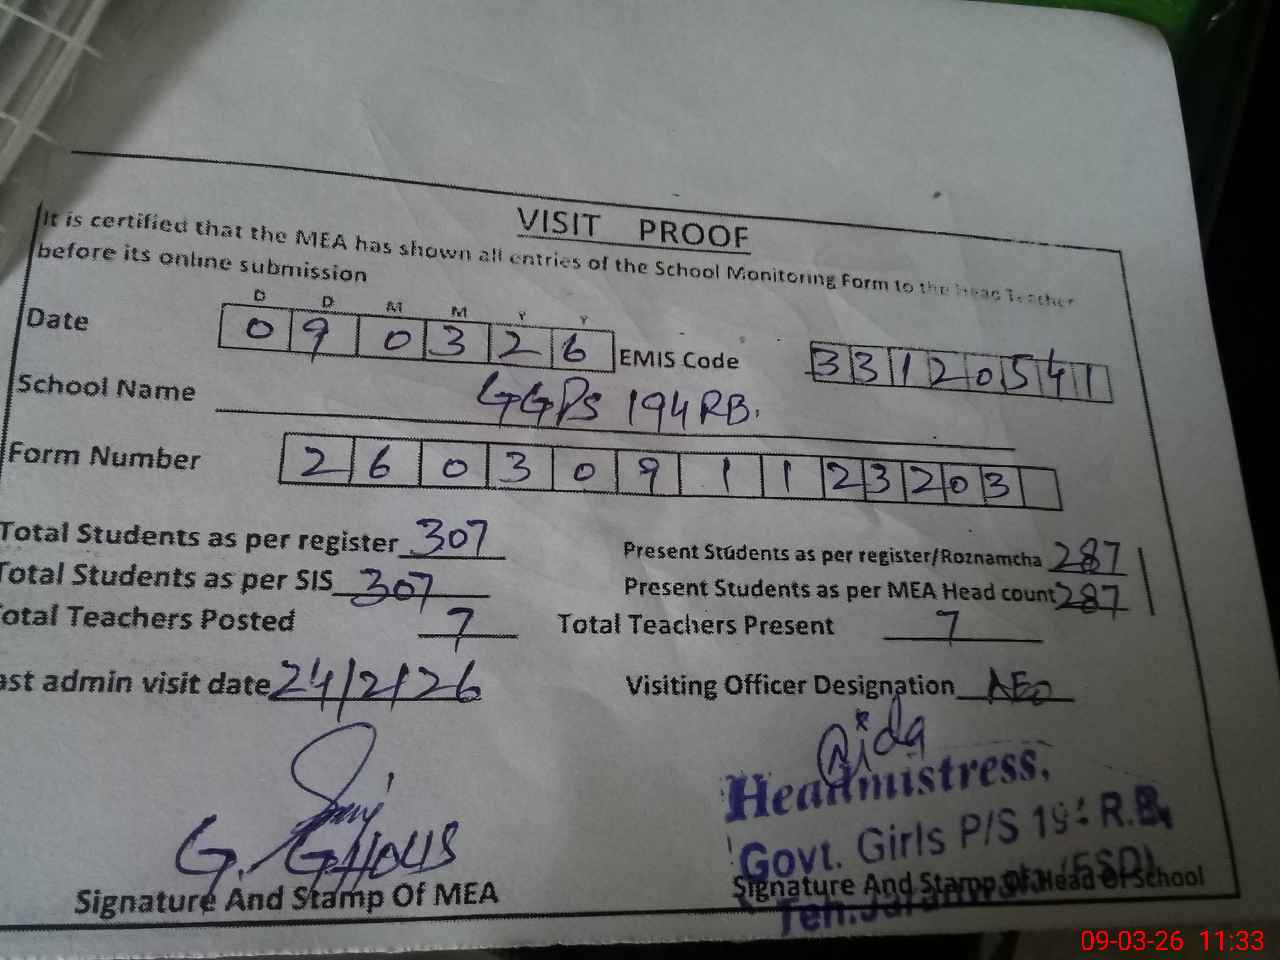 VISIT PROOF
It is certified that the MEA has shown all entries of the School Monitoring Form to the Head Teacher
before its online submission
D D M M Y Y
Date 0 9 0 3 2 6 EMIS Code 3 3 1 2 0 5 4 1
School Name GGPS 194RB.
Form Number 2 6 0 3 0 9 1 1 2 3 2 0 3
Total Students as per register 307 Present Students as per register/Roznamcha 287
Total Students as per SIS 307 Present Students as per MEA Head count 287
otal Teachers Posted 7 Total Teachers Present 7
ast admin visit date 24/2/26 Visiting Officer Designation AEO
Headmistress,
G. GHOUS Govt. Girls P/S 19 R.B,
Signature And Stamp Of MEA Signature And Stamp Of Head Of School
(FSD)
Teh:
09-03-26 11:33